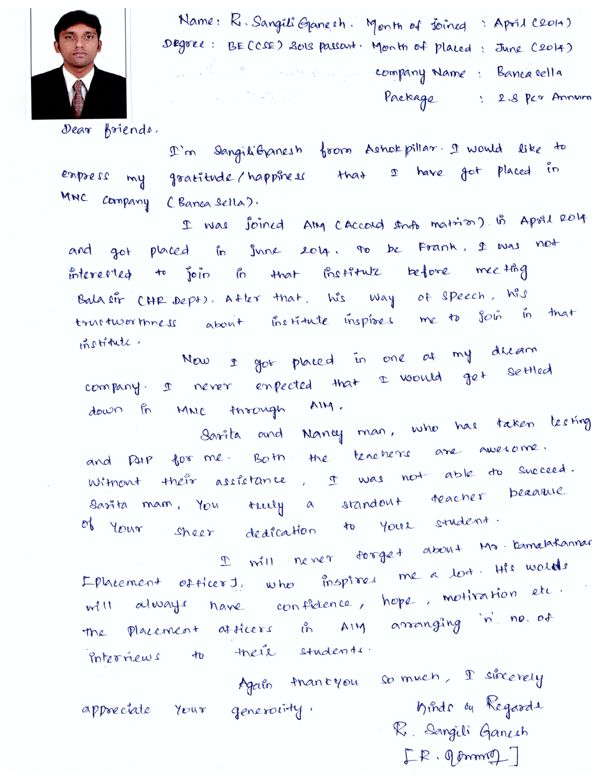 Name: R. Sangili Ganesh. Month of joined : April (2014)
Degree : BE (CSE) 2013 passout. Month of placed : June (2014)
Company Name : Banca sella
Package : 2.8 per Annum
Dear friends,
I'm Sangili Ganesh from Ashok pillar. I would like to
express my gratitude/happiness that I have got placed in
MNC company (Banca Sella).
I was joined AIM (Accord Info matrix) in April 2014
and got placed in June 2014. To be Frank, I was not
interested to join in that institute before meeting
Bala sir (HR Dept). After that, his way of speech, his
trustworthness about institute inspires me to join in that
institute.
Now I got placed in one at my dream
company. I never expected that I would get settled
down in MNC through AIM.
Sarita and Nancy mam, who has taken testing
and for me. Both the teachers are awesome.
Without their assistance, I was not able to succeed.
Sarita mam, You truly a standout teacher because
of Your sheer dedication to Your student.
I will never forget about Mr. Kamalakannan
[Placement officer], who inspires me a lot. His words
will always have confidence, hope, motivation etc.
The Placement officers in AIM arranging 'n' no. of
interviews to their students.
Again thankyou so much, I sincerely
appreciate Your generocity.
Kinds & Regards
R. Sangili Ganesh